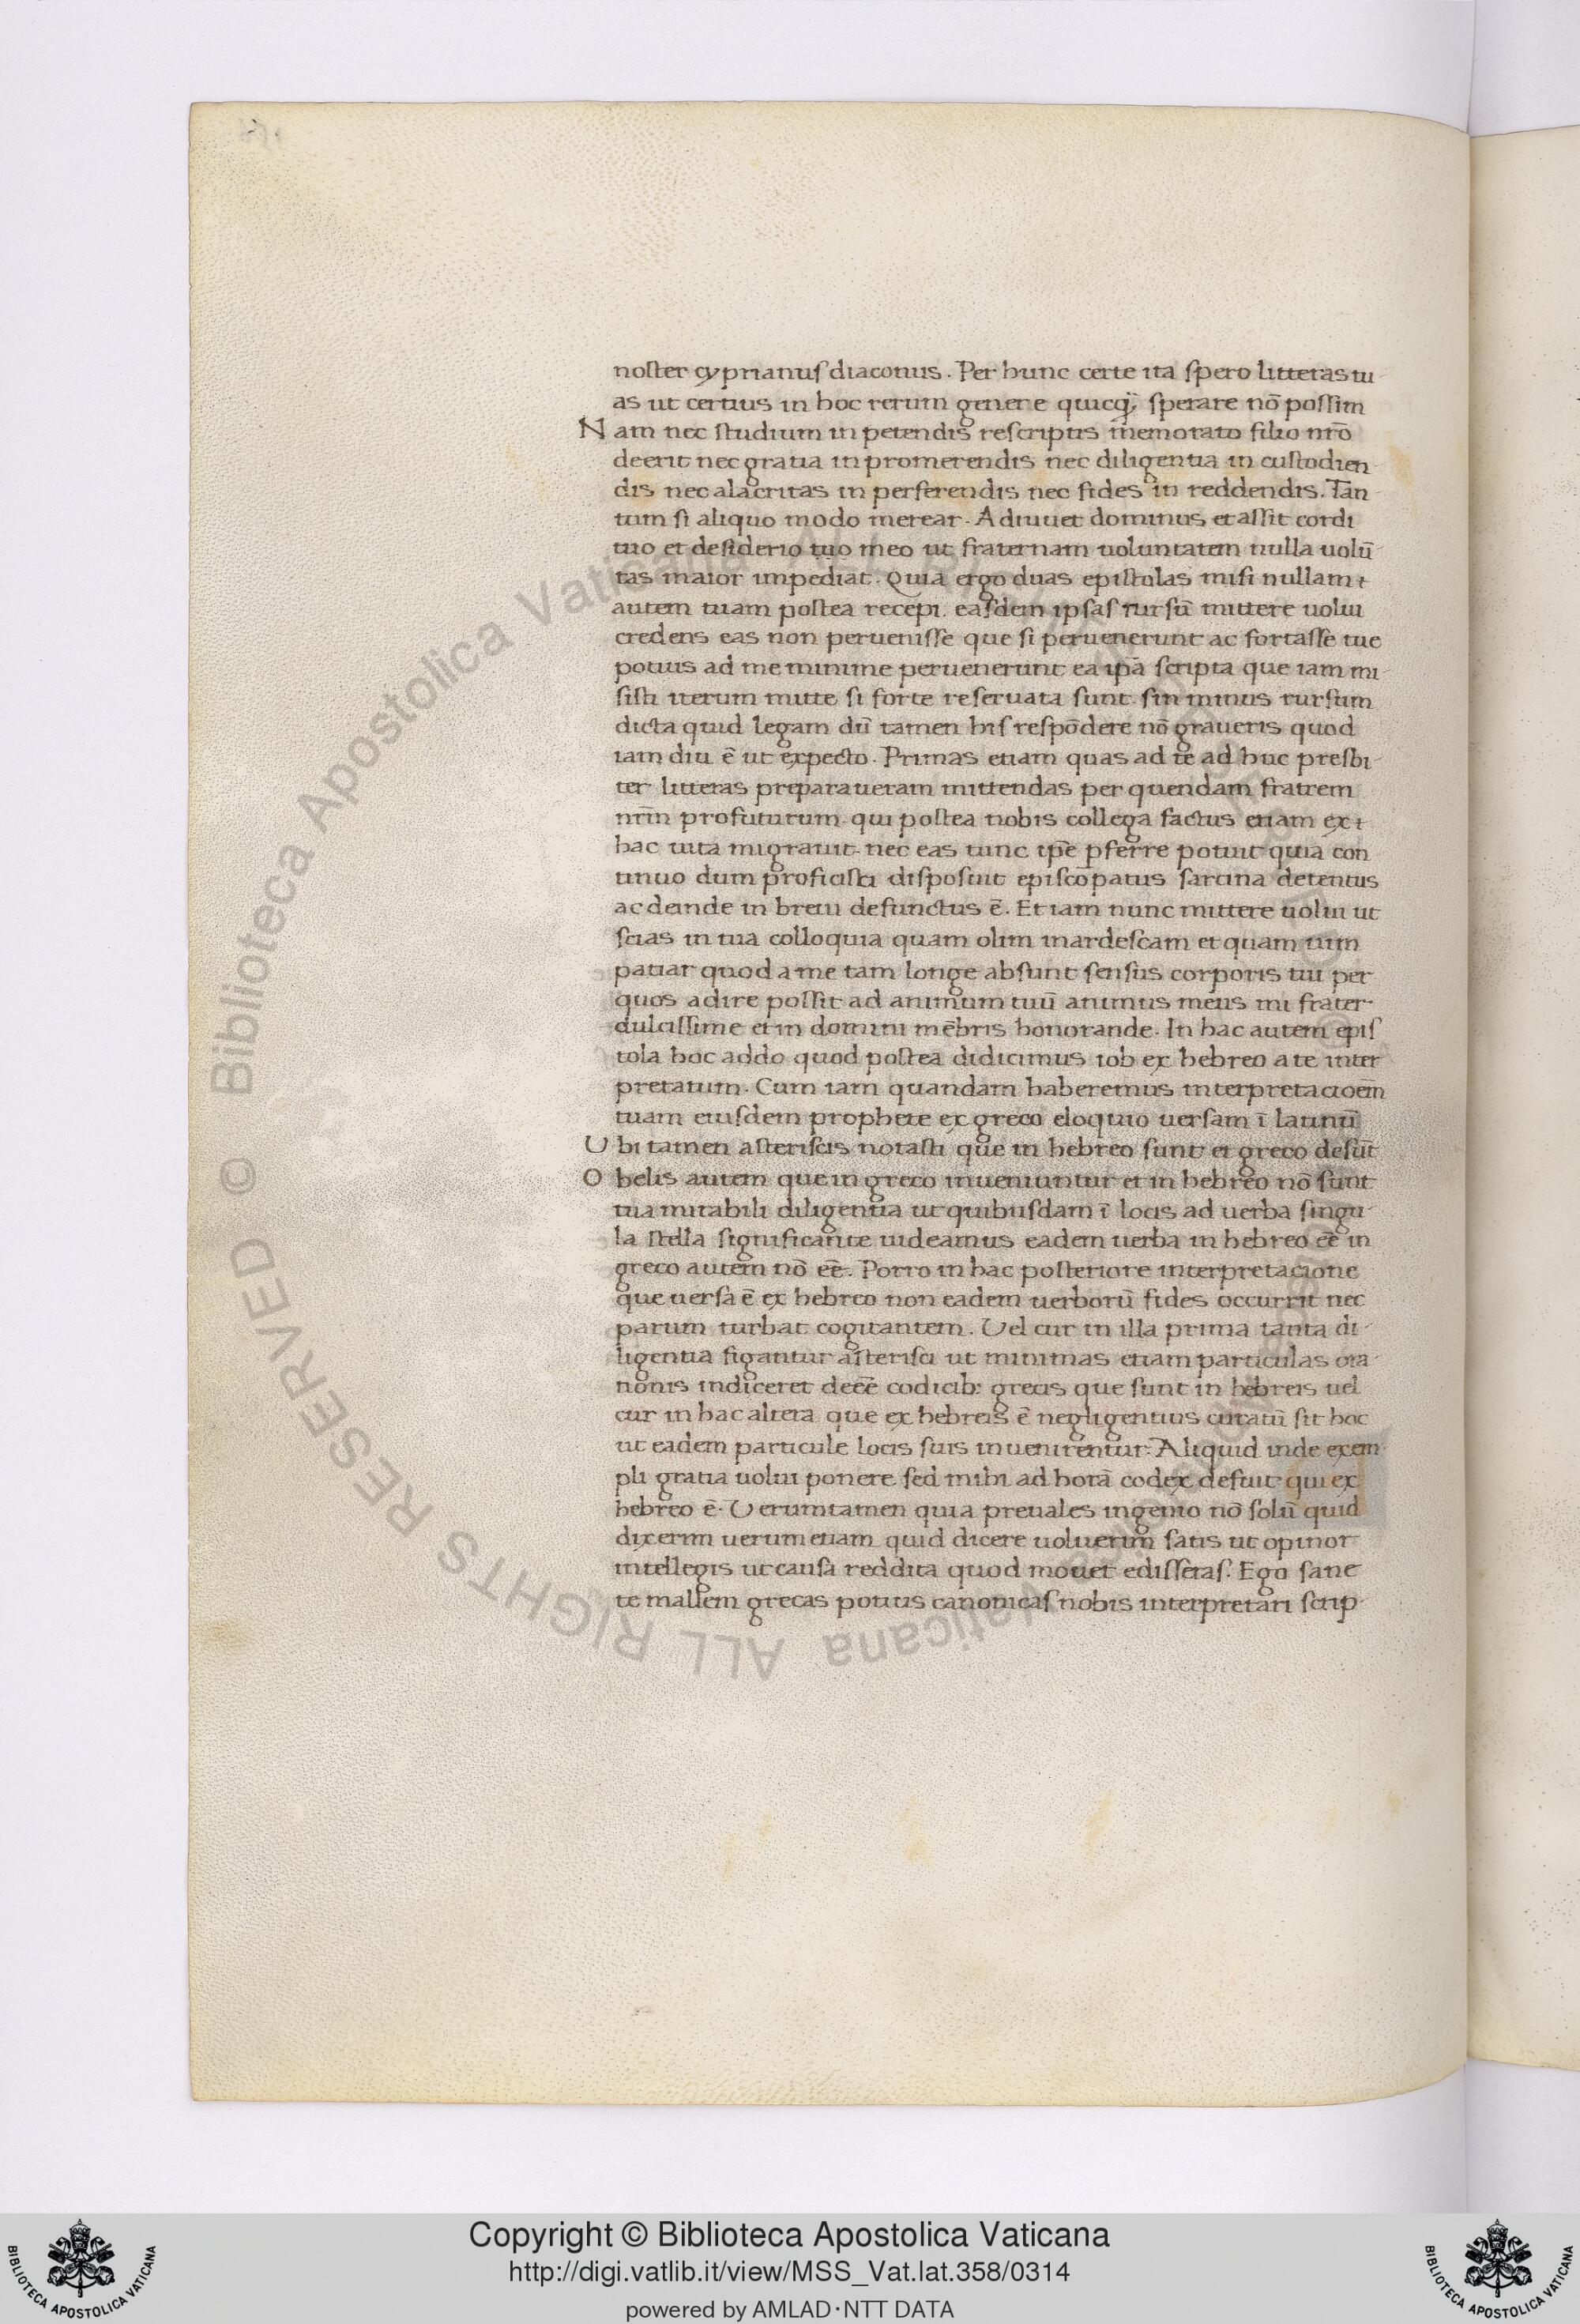 noster cyprianus diaconus. Per hunc certe ita spero litteras tu
as ut certius in hoc rerum genere quicq; sperare nō possim
Nam nec studium in petendis rescriptis memorato filio nr̄o
deerit nec gratia in promerendis nec diligentia in custodien
dis nec alacritas in perferendis nec fides in reddendis. Tan
tum si aliquo modo merear. Adiuuet dominus et assit cordi
tuo et desiderio tuo meo ut fraternam uoluntatem nulla uolū
tas maior impediat. Quia ergo duas epistolas misi nullam
autem tuam postea recepi. easdem ipsas rursū mittere uolui
credens eas non peruenisse que si peruenerunt ac fortasse tue
potius ad me minime peruenerunt ea ip̄a scripta que iam mi
sisti iterum mitte si forte reseruata sunt. sin minus rursum
dicta quid legam dū tamen his respōdere nō graueris quod
iam diu ē ut expecto. Primas etiam quas ad te ad huc presbi
ter litteras preparaueram mittendas per quendam fratrem
nr̄m profuturum. qui postea nobis collega factus etiam ex
hac uita migrauit. nec eas tunc ip̄e pferre potuit quia con
tinuo dum proficisci disposuit episcopatus sarcina detentus
ac deinde in breui defunctus ē. Et iam nunc mittere uolui ut
scias in tua colloquia quam olim inardescam et quam uim
patiar quod a me tam longe absunt sensus corporis tui per
quos adire possit ad animum tuū animus meus mi frater
dulcissime et in domini mēbris honorande. In hac autem epis
tola hoc addo quod postea didicimus iob ex hebreo a te inter
pretatum. Cum iam quandam haberemus interpretacioēm
tuam eiusdem prophete ex greco eloquio uersam ī latinū
Ubi tamen asteriscis notasti que in hebreo sunt et greco desūt
Obelis autem que in greco inueniuntur et in hebreo nō sunt
tua mirabili diligentia ut quibusdam ī locis ad uerba singu
la stella significante uideamus eadem uerba in hebreo eē in
greco autem nō eē. Porro in hac posteriore interpretacione
que uersa ē ex hebreo non eadem uerborū fides occurrit nec
parum turbat cogitantem. Uel cur in illa prima tanta di
ligentia figantur asterisci ut minimas etiam particulas ora
nonis indiceret deeē codicib: grecis que sunt in hebreis uel
cur in hac altera que ex hebreis ē negligentius curatū sit hoc
ut eadem particule locis suis inuenirentur. Aliquid inde exem
pli gratia uolui ponere sed mihi ad horā codex defuit qui ex
hebreo ē. Uerumtamen quia preuales ingenio nō solū quid
dixerim uerum etiam quid dicere uoluerim satis ut opinor
intellegis ut causa reddita quod mouet edisseras. Ego sane
te mallem grecas potius canonicas nobis interpretari scrip
Copyright © Biblioteca Apostolica Vaticana
http://digi.vatlib.it/view/MSS_Vat.lat.358/0314
powered by AMLAD·NTT DATA